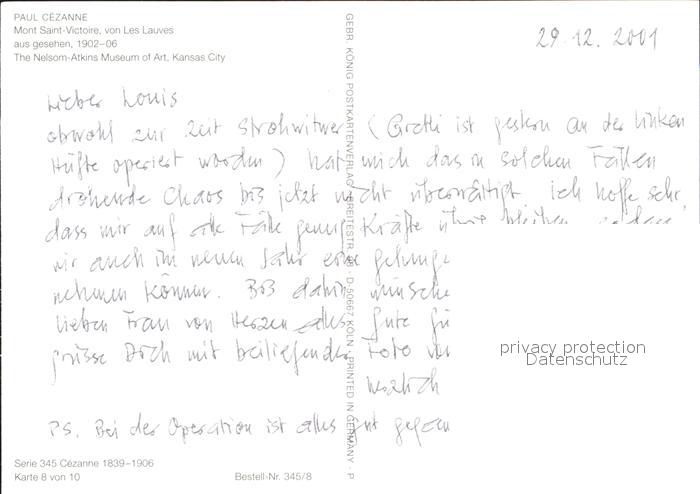 PAUL CÉZANNE
Mont Saint-Victoire, von Les Lauves
aus gesehen, 1902–06
The Nelsom-Atkins Museum of Art, Kansas City
29.12.2001
Lieber Louis
obwohl zur Zeit Strohwitwer (Gretli ist gestern an der linken
Hüfte operiert worden) hat mich das in solchen Fällen
drohende Chaos bis jetzt nicht überwältigt. Ich hoffe sehr,
dass mir auf alle Fälle genug Kräfte übrig bleiben, sodass
wir auch im neuen Jahr eine gelunge
nehmen können. Bis dahin wünsche
lieben Frau von Herzen alles Gute fü
grüsse Dich mit beiliegendem Foto
herzlich
PS. Bei der Operation ist alles gut gegan
GEBR. KÖNIG POSTKARTENVERLAG · BREITESTR. · D-50667 KÖLN · PRINTED IN GERMANY · P
privacy protection
Datenschutz
Serie 345 Cézanne 1839–1906
Karte 8 von 10
Bestell-Nr. 345/8